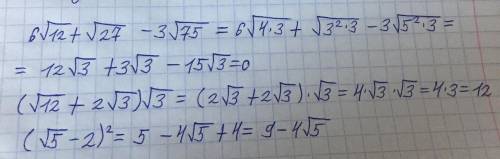 6√12 + √27 - 3√75 = 6√4·3 + √3²·3 - 3√5²·3 =
= 12√3 + 3√3 - 15√3 = 0
(√12 + 2√3)√3 = (2√3 + 2√3)·√3 = 4·√3·√3 = 4·3 = 12
(√5 - 2)² = 5 - 4√5 + 4 = 9 - 4√5